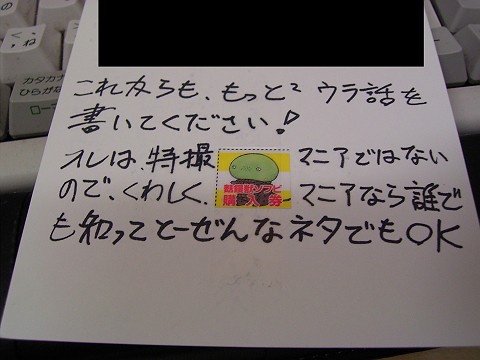 く、
ね
カタカナ
ひらがな
ロー
これからも、もっと2 ウラ話を
書いてください!
オレは、特撮 マニアではない
ので、くわしく、 マニアなら誰で
超獣ソフビ
購入券
も知ってとーぜんなネタでもOK